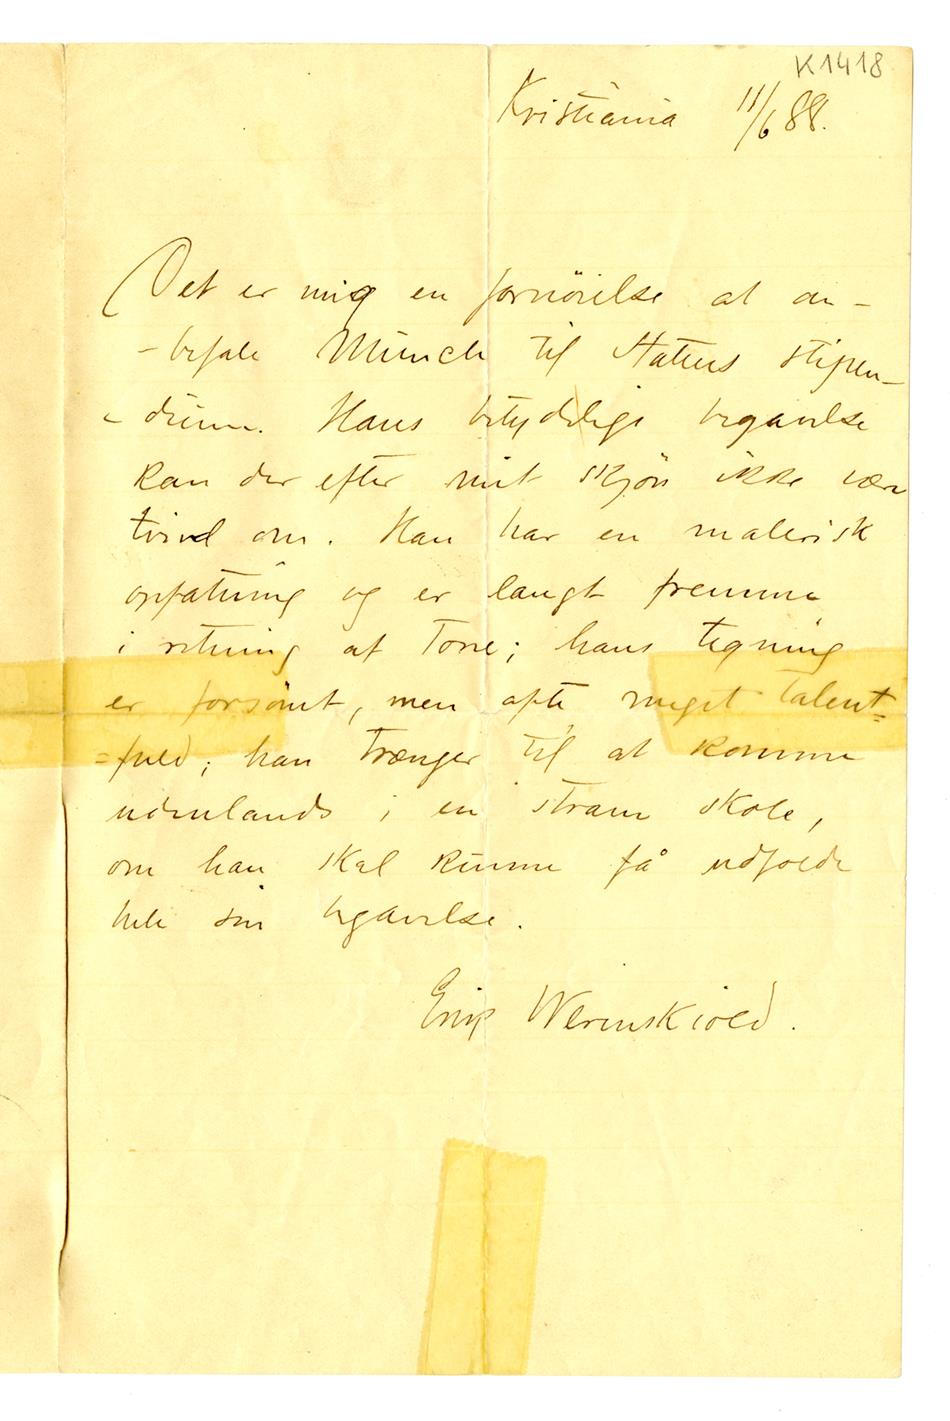 K1418
Kristiania 11/6 88.
Det er mig en fornöielse at an-
-befale Munch til Statens stipen-
-dium. Hans betydelige begavelse
kan der efter mit skjön ikke være
tvivl om. Han har en malerisk
opfatning og er langt fremme
i retning af Tone; hans tegning
er forsömt, men ofte meget talent=
=fuld; han trænger til at komme
udenlands i en stram skole,
om han skal kunne få udfolde
hele sin begavelse.
Erik Werenskiold.